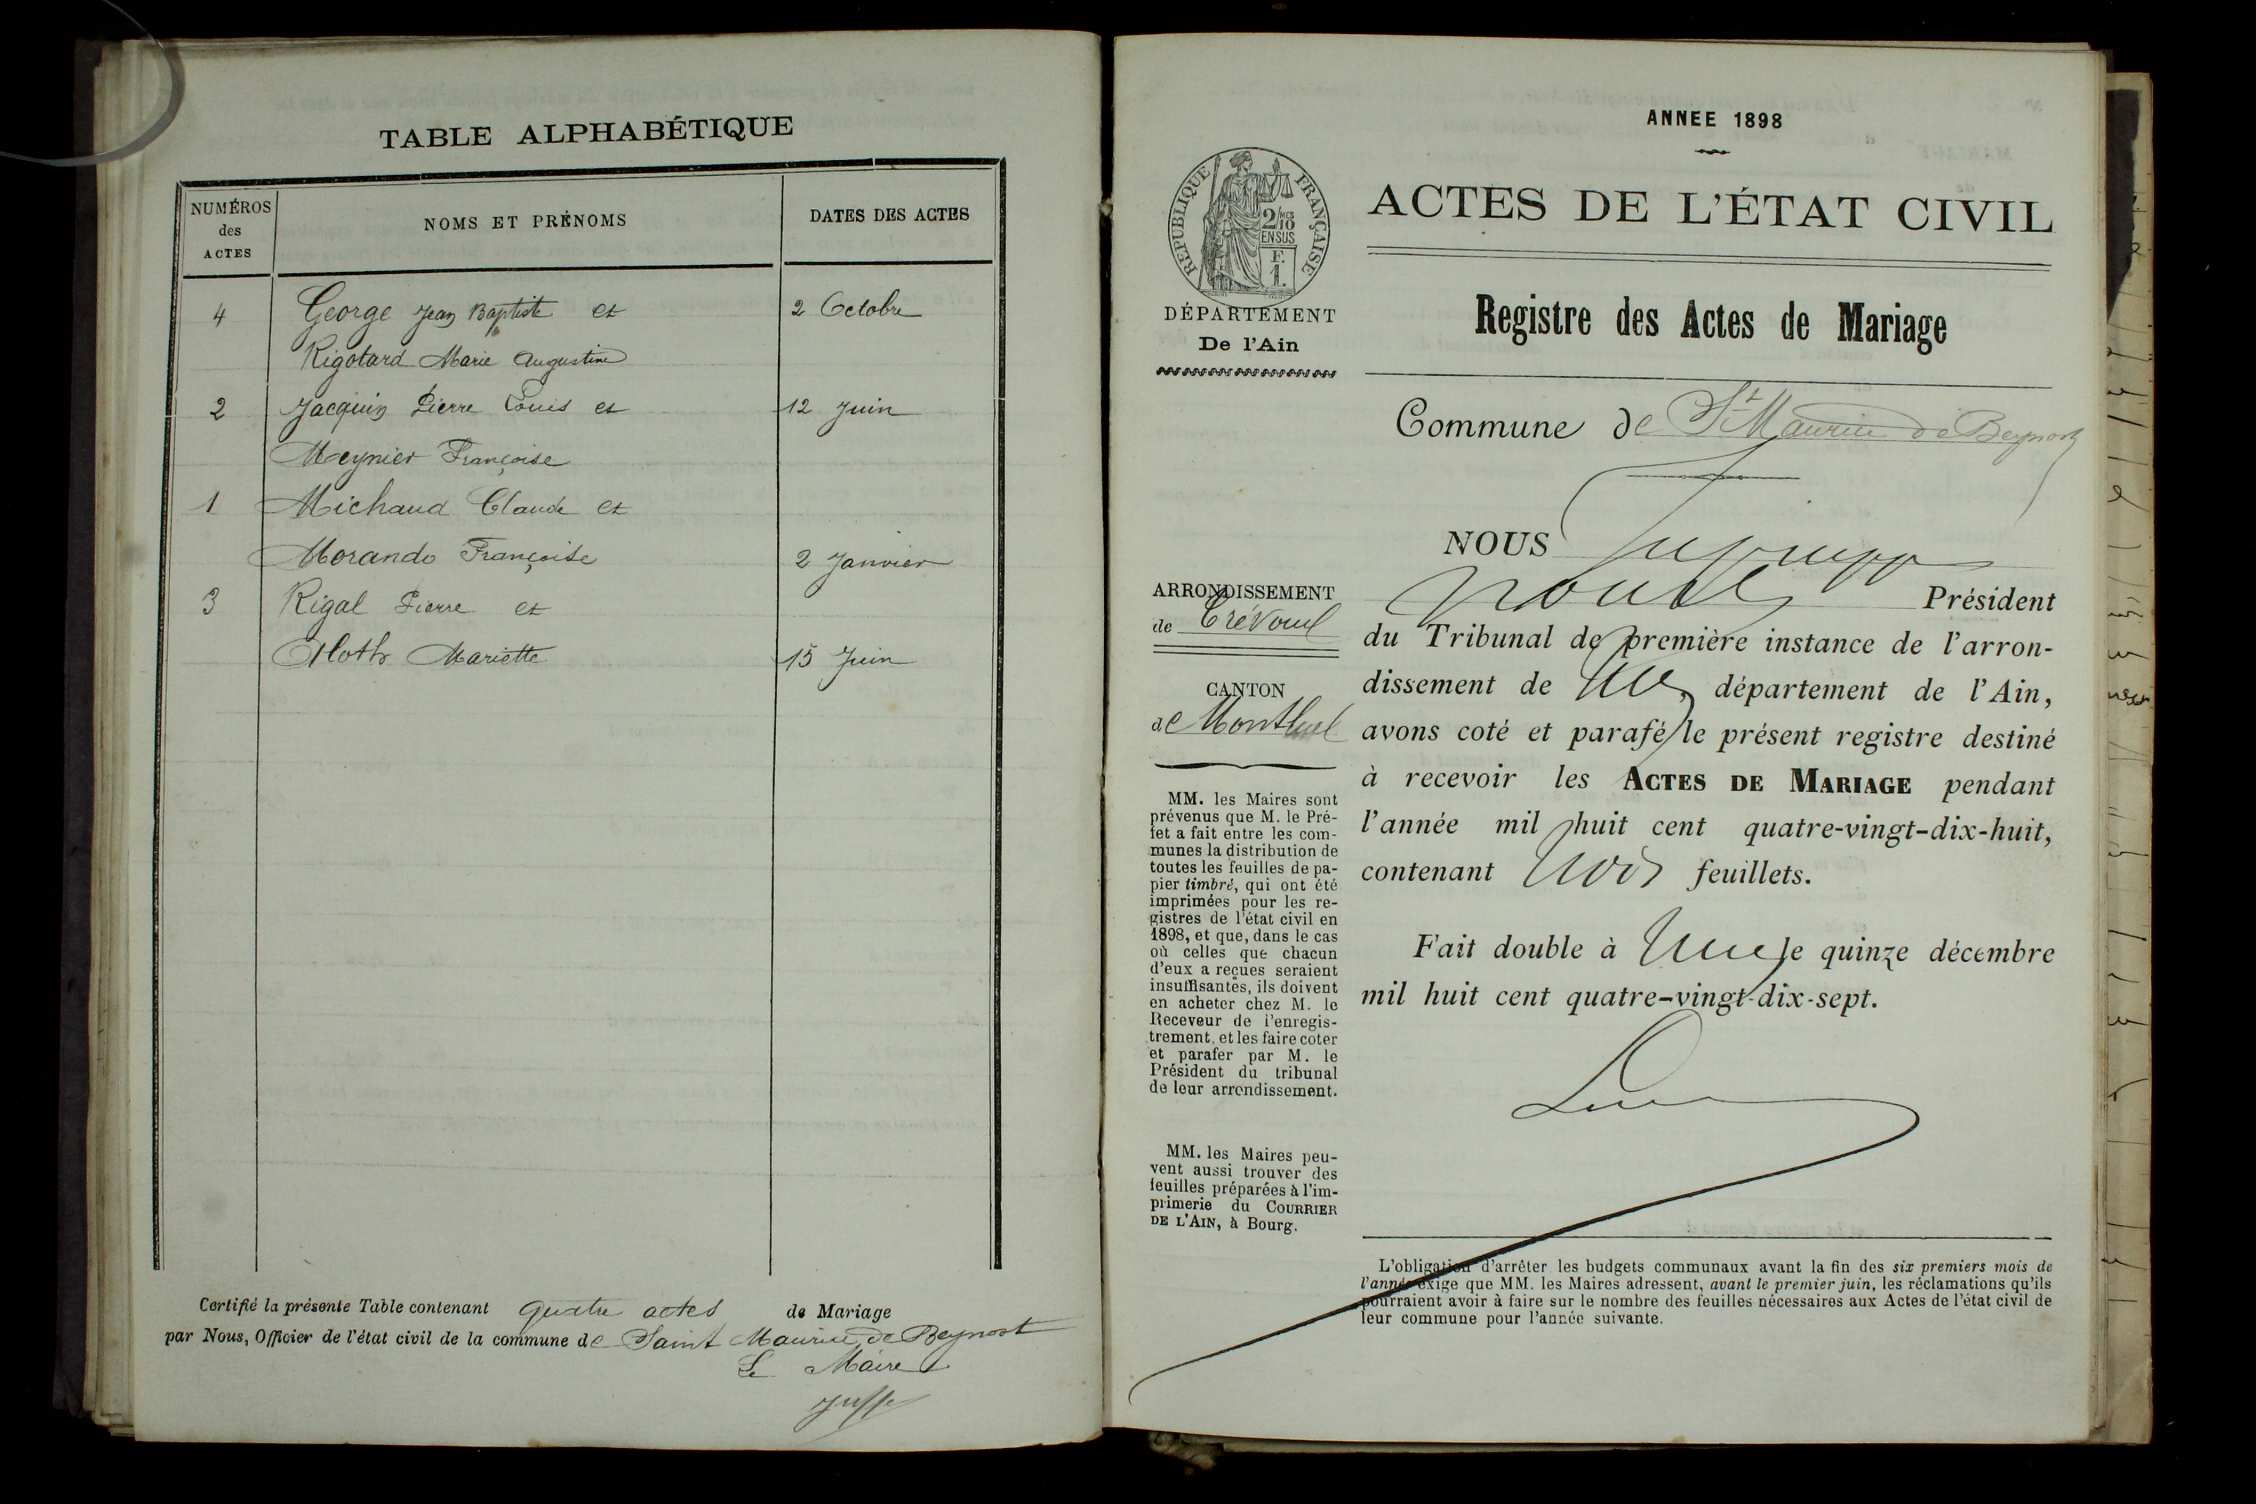 TABLE ALPHABÉTIQUE
NUMÉROS des ACTES
NOMS ET PRÉNOMS
DATES DES ACTES
4 George Jean Baptiste et 2 Octobre
Rigotard Marie Augustine
2 Jacquin Pierre Louis et 12 Juin
Meynier Françoise
1 Michaud Claude et
Morando Françoise 2 Janvier
3 Rigal Pierre et
Mariette 15 Juin
Certifié la présente Table contenant quatre actes de Mariage
par Nous, Officier de l'état civil de la commune de Saint Maurice de Beynost
Le Maire
ANNEE 1898
RÉPUBLIQUE FRANÇAISE
2/10 MES
EN SUS
F.
1.
DÉPARTEMENT
De l'Ain
ARRONDISSEMENT
de Trévoux
CANTON
de Montluel
MM. les Maires sont
prévenus que M. le Pré-
fet a fait entre les com-
munes la distribution de
toutes les feuilles de pa-
pier timbré, qui ont été
imprimées pour les re-
gistres de l'état civil en
1898, et que, dans le cas
où celles que chacun
d'eux a reçues seraient
insuffisantes, ils doivent
en acheter chez M. le
Receveur de l'enregis-
trement, et les faire coter
et parafer par M. le
Président du tribunal
de leur arrondissement.
MM. les Maires peu-
vent aussi trouver des
feuilles préparées à l'im-
primerie du COURRIER
DE L'AIN, à Bourg.
ACTES DE L'ÉTAT CIVIL
Registre des Actes de Mariage
Commune de St Maurice de Beynost
NOUS
Président
du Tribunal de première instance de l'arron-
dissement de département de l'Ain,
avons coté et parafé le présent registre destiné
à recevoir les ACTES DE MARIAGE pendant
l'année mil huit cent quatre-vingt-dix-huit,
contenant trois feuillets.
Fait double à le quinze décembre
mil huit cent quatre-vingt-dix-sept.
L'obligation d'arrêter les budgets communaux avant la fin des six premiers mois de
l'année exige que MM. les Maires adressent, avant le premier juin, les réclamations qu'ils
pourraient avoir à faire sur le nombre des feuilles nécessaires aux Actes de l'état civil de
leur commune pour l'année suivante.